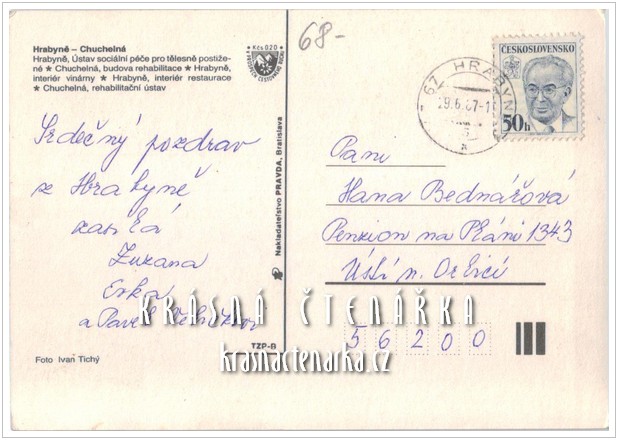 68-
Hrabyně – Chuchelná
Hrabyně, Ústav sociální péče pro tělesně postiže-
né ★ Chuchelná, budova rehabilitace ★ Hrabyně,
interiér vinárny ★ Hrabyně, interiér restaurace
★ Chuchelná, rehabilitační ústav
Kčs 0,20
ČESKOSLOVENSKO
50h
HRABYNĚ
29.6.87-1
Srdečný pozdrav
z Hrabyně
zasílá
Zuzana
Erka
a Pavel
Nakladatelství PRAVDA, Bratislava
Paní
Hana Bednářová
Penzion na Pláni 1343
Ústí n. Orlicí
56200
KRÁSNÁ ČTENÁŘKA
krasnactenarka.cz
TZP-B
Foto Ivan Tichý